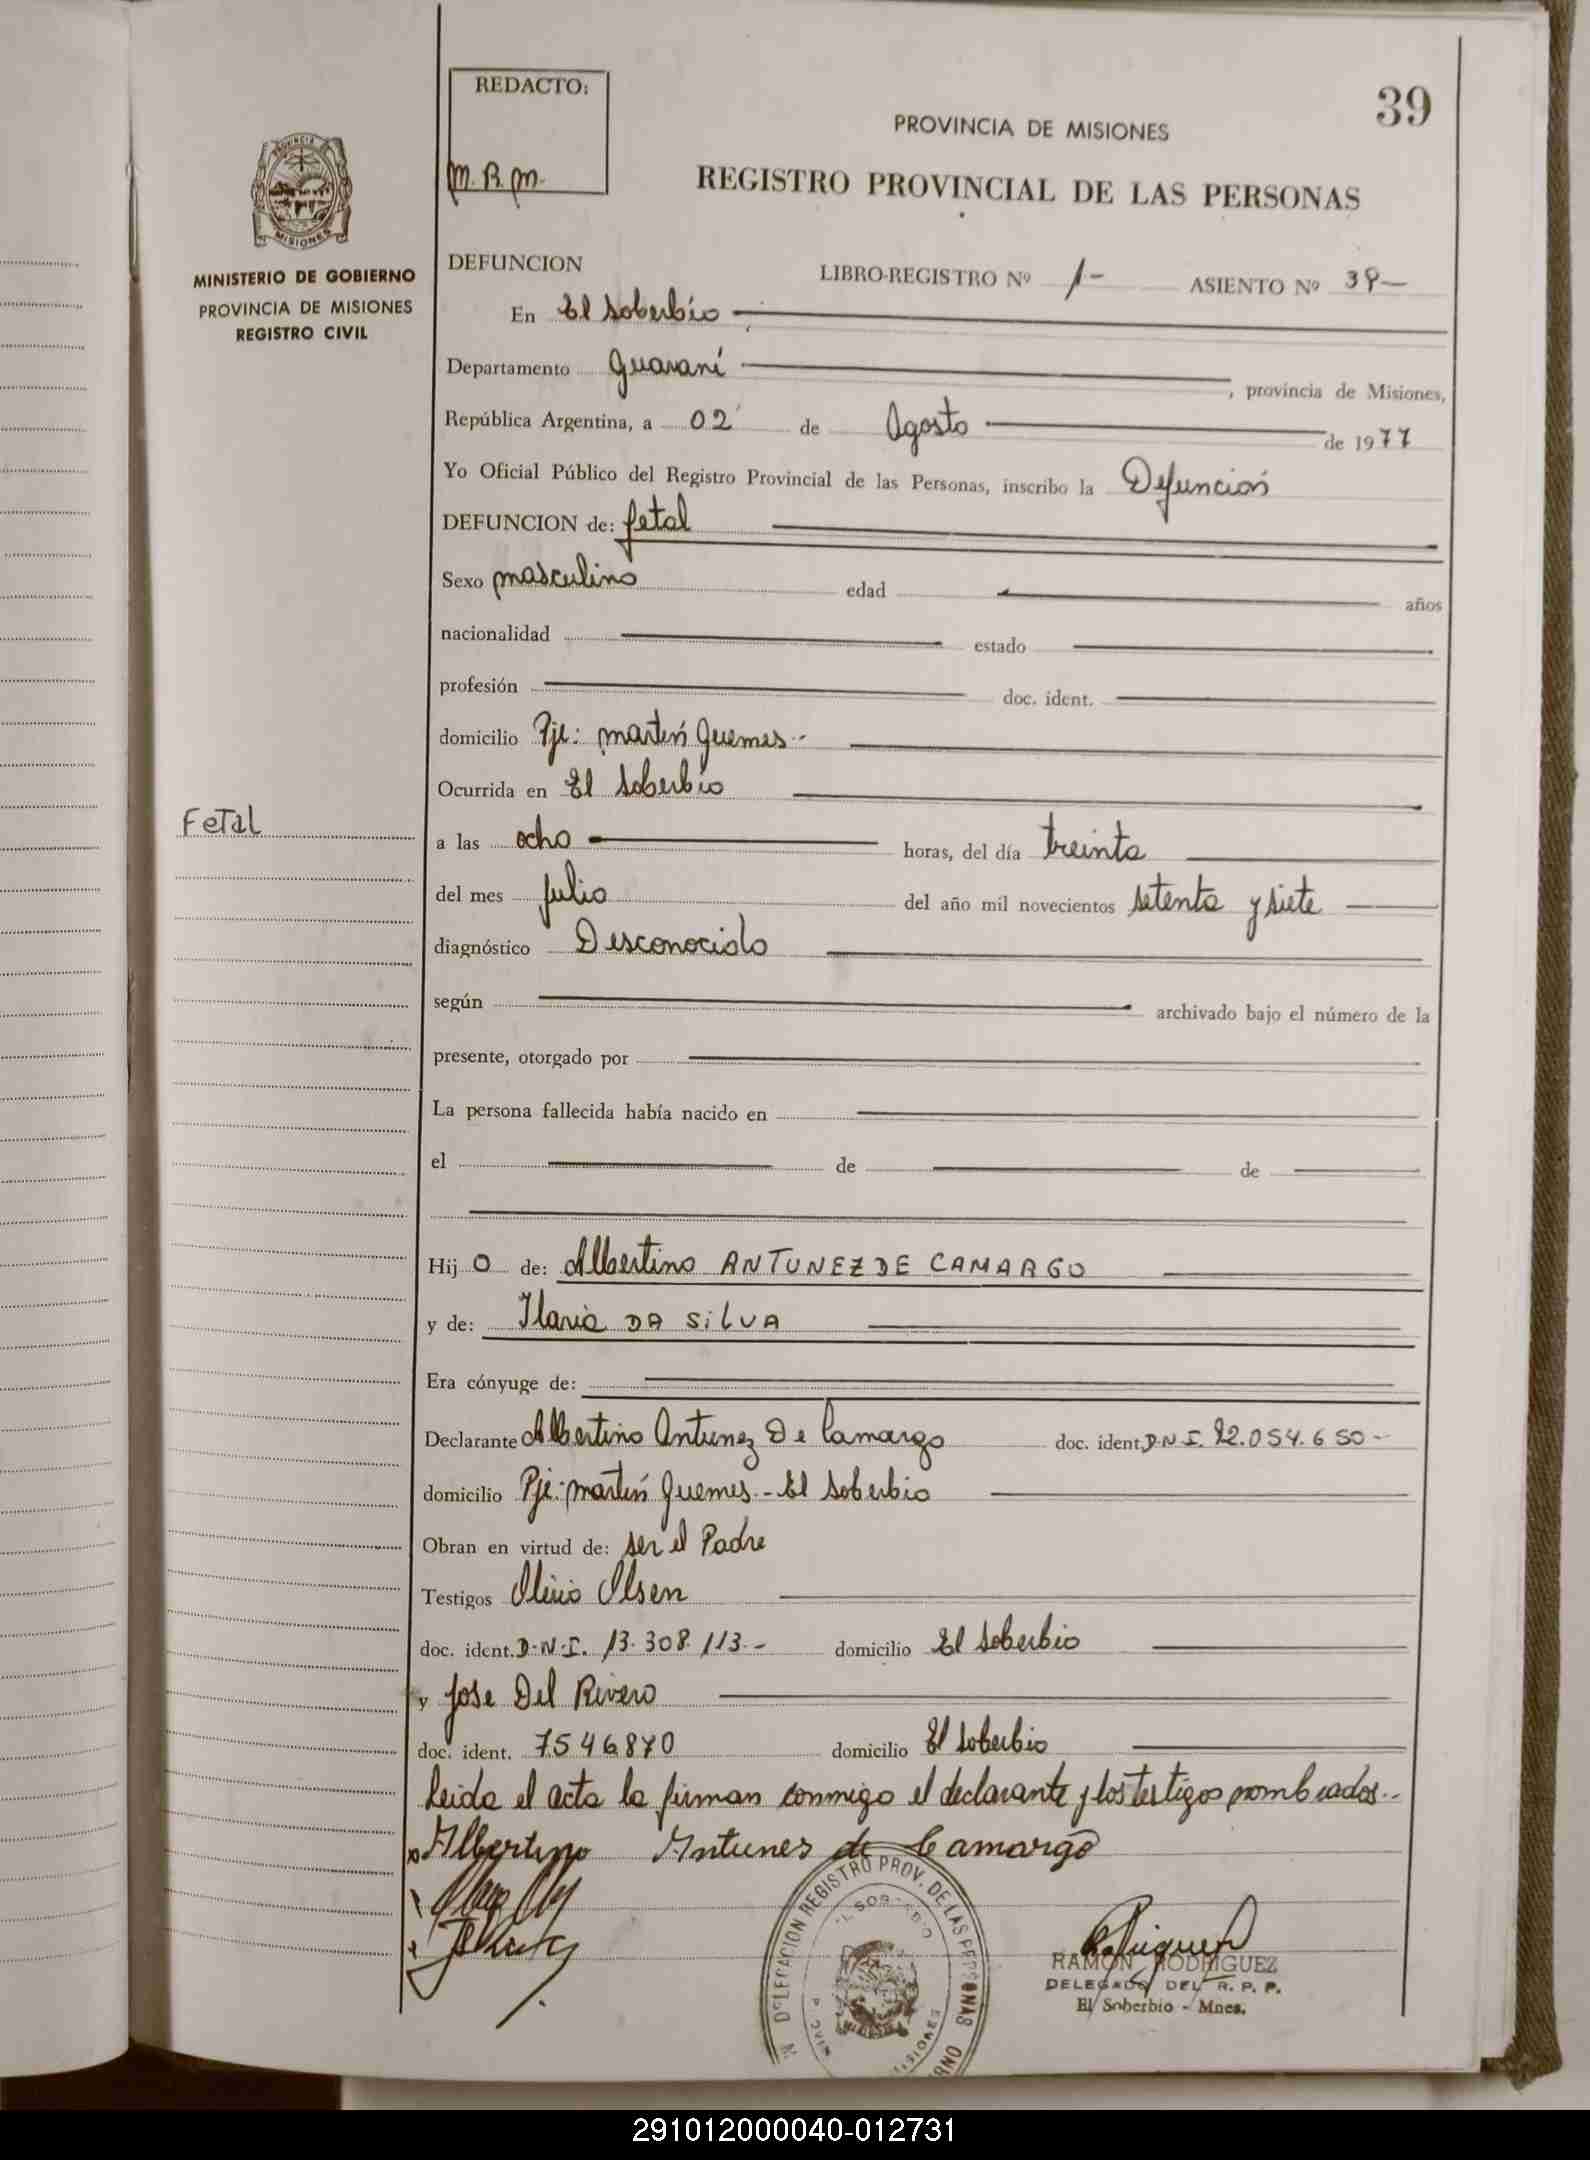 39
REDACTO:
M. R. M.
PROVINCIA DE MISIONES
REGISTRO PROVINCIAL DE LAS PERSONAS
PROVINCIA DE
MISIONES
MINISTERIO DE GOBIERNO
PROVINCIA DE MISIONES
REGISTRO CIVIL
DEFUNCION LIBRO-REGISTRO Nº 1- ASIENTO Nº 39-
En El Soberbio
Departamento Guaraní, provincia de Misiones,
República Argentina, a 02 de Agosto de 1977
Yo Oficial Público del Registro Provincial de las Personas, inscribo la Defunción
DEFUNCION de: fetal
Sexo masculino edad años
nacionalidad estado
profesión doc. ident.
domicilio Pje: Martín Guemes-
Ocurrida en El Soberbio
Fetal
a las ocho horas, del día treinta
del mes julio del año mil novecientos setenta y siete
diagnóstico Desconocido
según archivado bajo el número de la
presente, otorgado por
La persona fallecida había nacido en
el de de
Hij o de: Albertino ANTUNEZ DE CAMARGO
y de: Ilaria DA SILVA
Era cónyuge de:
Declarante Albertino Antunez De Camargo doc. ident. D.N.I. 92.054.650-
domicilio Pje: Martín Guemes.- El Soberbio
Obran en virtud de: ser el Padre
Testigos Olirio Olsen
doc. ident. D.N.I. 13.308.113.- domicilio El Soberbio
y Jose Del Rivero
doc. ident. 7546870 domicilio El Soberbio
Leida el acta la firman conmigo el declarante y los testigos nombrados.-
Albertino Antunes de Camargo
DELEGACION REGISTRO PROV. DE LAS PERSONAS
RAMON RODRIGUEZ
DELEGADO DEL R. P. P.
El Soberbio - Mnes.
291012000040-012731